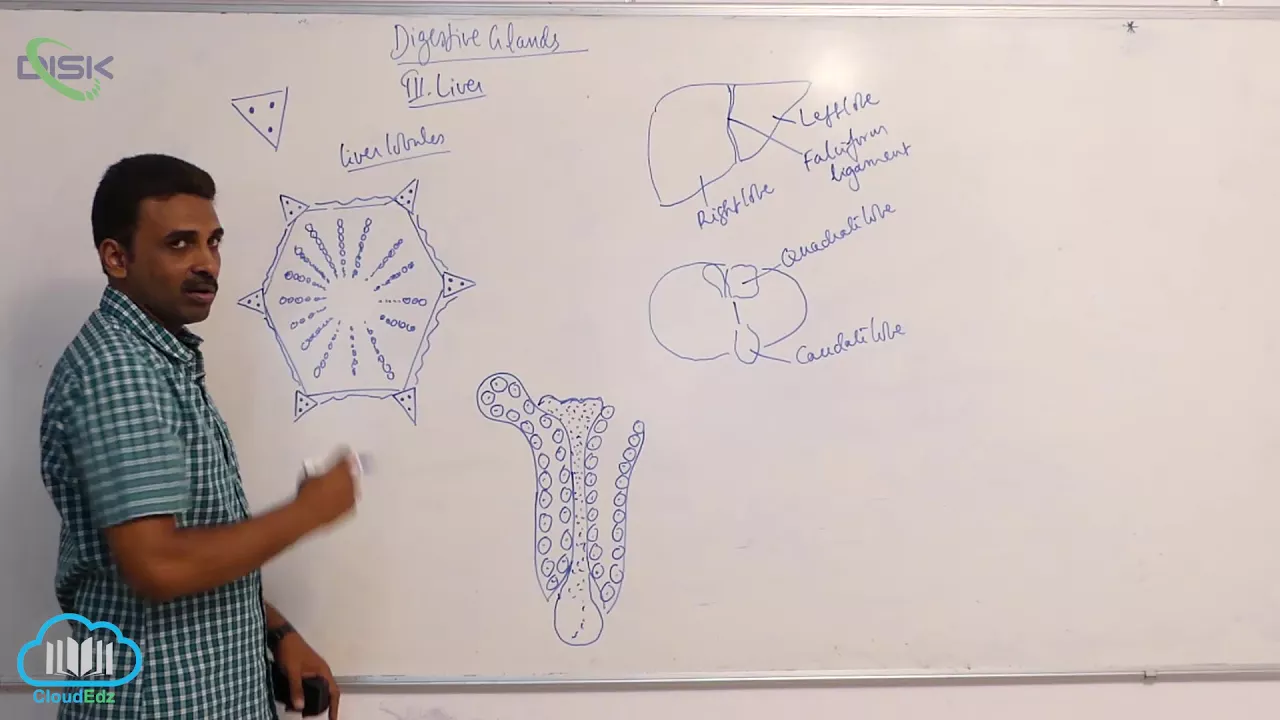 DISK
Digestive Glands
III. Liver
Liver lobules
Left lobe
Falciform
ligament
Right lobe
Quadrate lobe
Caudate lobe
CloudEdz